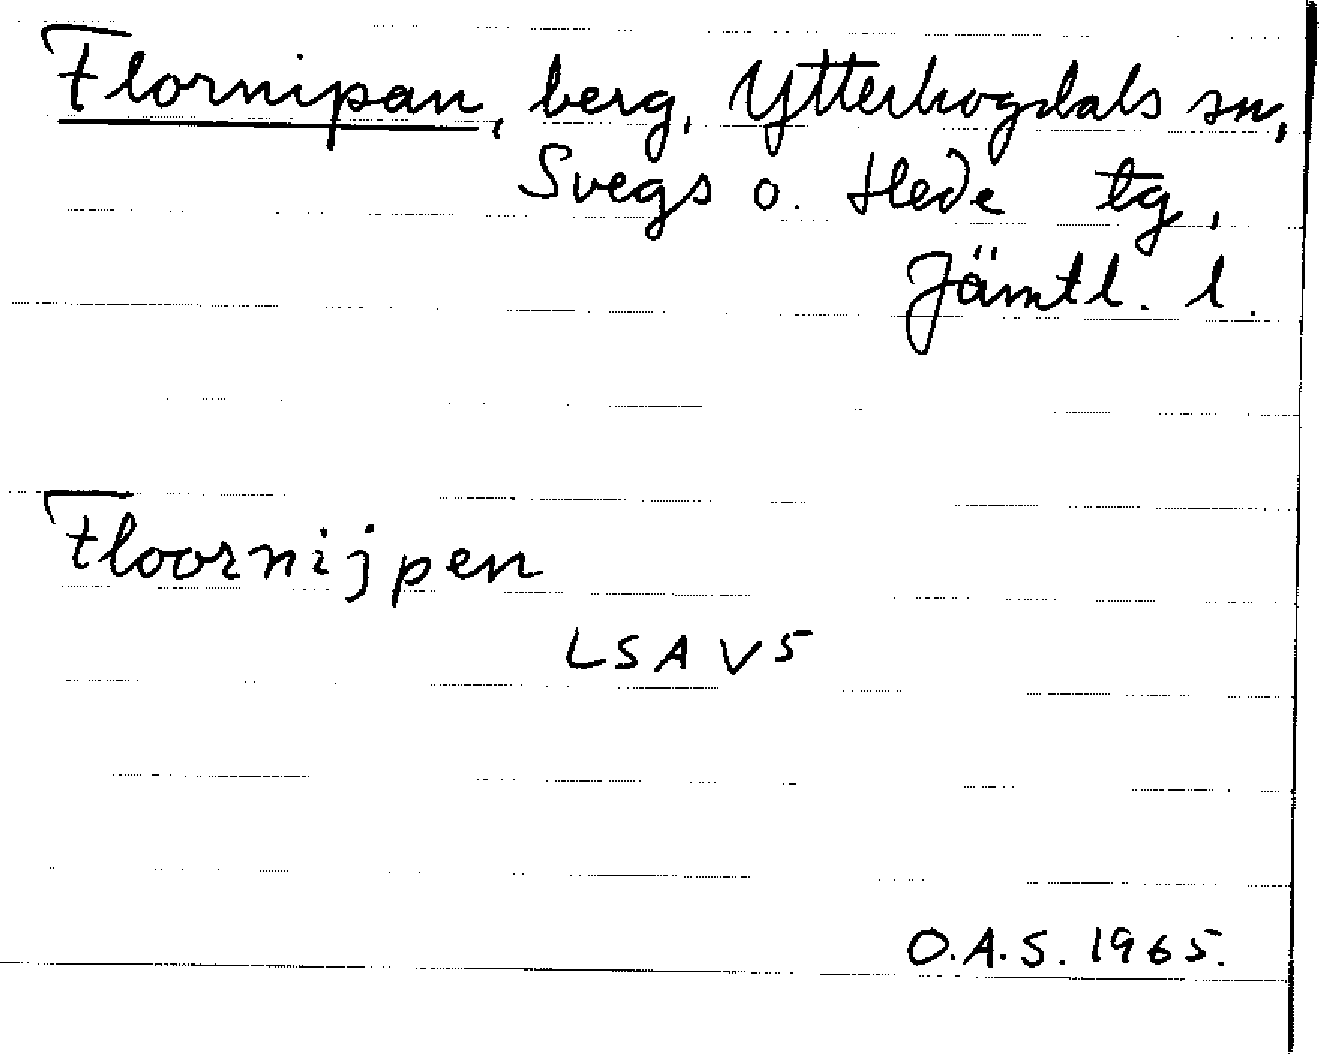 Flornipan, berg, Ytterhogdals sn,
Svegs o. Hede tg,
Jämtl. l.
Floornijpen
LSA V5
O.A.S. 1965.